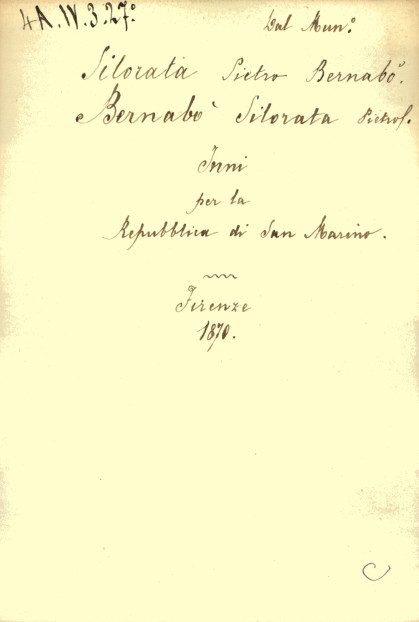 4A.IV.3.27°
Dal Mun.°
Silorata Pietro Bernabò.
Bernabò Silorata Pietro.
Inni
per la
Repubblica di San Marino.
Firenze
1870.